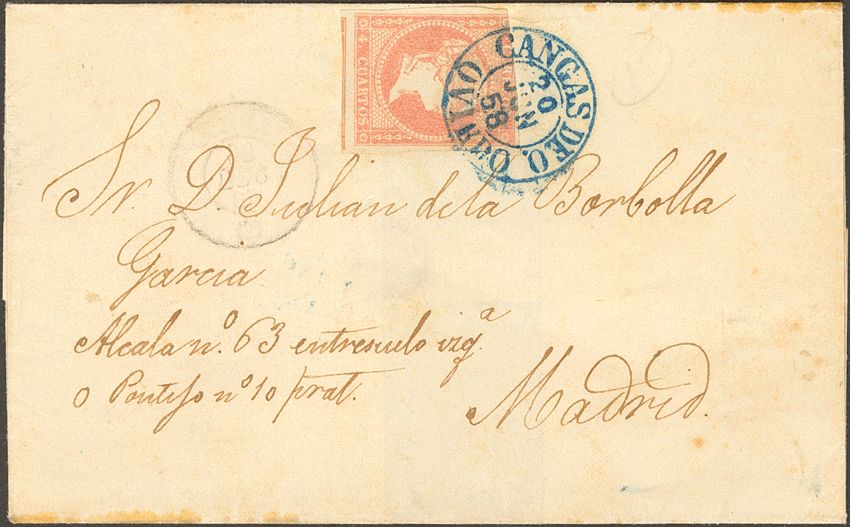 CUARTOS
CANGAS DE O. OVIEDO
20
JUN
58
Sr. D. Julian de la Borbolla
Garcia
Alcala nº 63 entresuelo izqª
o Pontejo nº 10 pral.
Madrid.